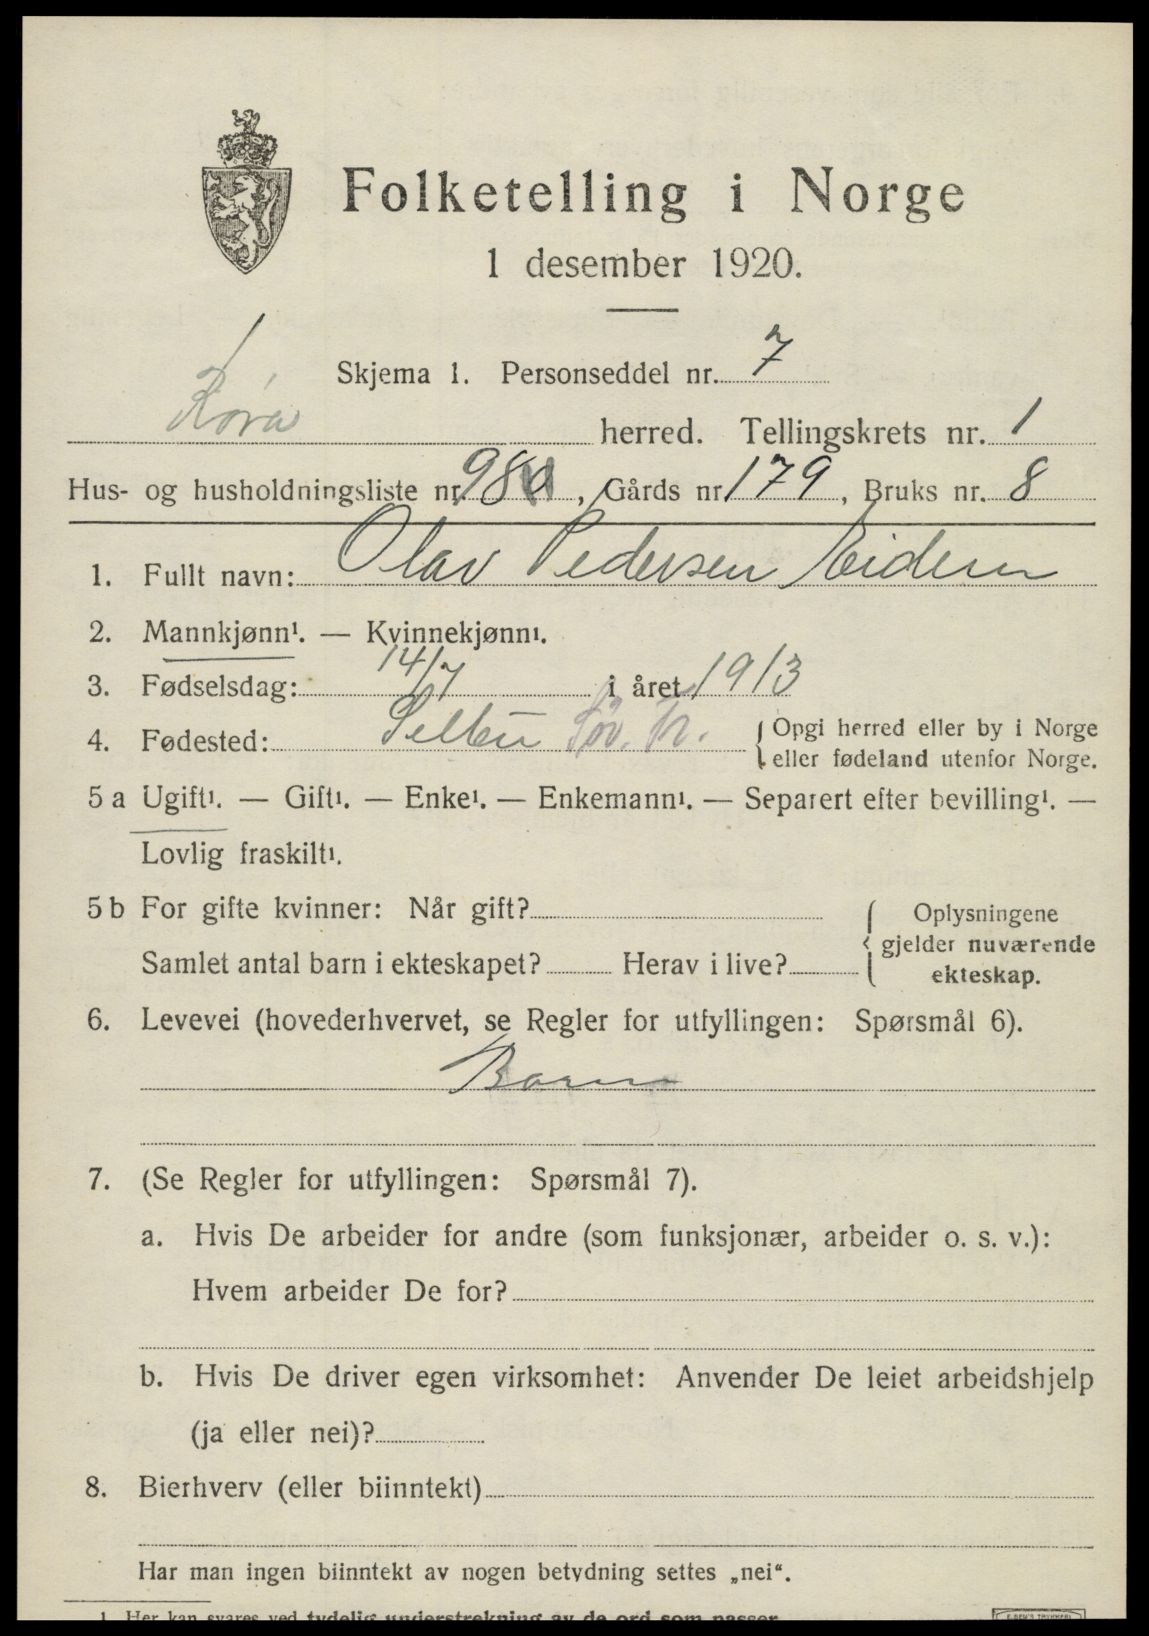 Folketelling i Norge
1 desember 1920.
Skjema 1. Personseddel nr. 7
herred. Tellingskrets nr. 1
Hus- og husholdningsliste nr. 98, Gårds nr. 179, Bruks nr. 8
1. Fullt navn: Olav Pedersen Eidem
2. Mannkjønn¹. — Kvinnekjønn¹.
3. Fødselsdag: 14/7 i året 1913
4. Fødested: Selbu Sør. Tr. { Opgi herred eller by i Norge
eller fødeland utenfor Norge.
5 a Ugift¹. — Gift¹. — Enke¹. — Enkemann¹. — Separert efter bevilling¹. —
Lovlig fraskilt¹.
5 b For gifte kvinner: Når gift? { Oplysningene
gjelder nuværende
Samlet antal barn i ekteskapet? Herav i live?
ekteskap.
6. Levevei (hovederhvervet, se Regler for utfyllingen: Spørsmål 6).
Barn
7. (Se Regler for utfyllingen: Spørsmål 7).
a. Hvis De arbeider for andre (som funksjonær, arbeider o. s. v.):
Hvem arbeider De for?
b. Hvis De driver egen virksomhet: Anvender De leiet arbeidshjelp
(ja eller nei)?
8. Bierhverv (eller biinntekt)
Har man ingen biinntekt av nogen betydning settes „nei“.
1. Her kan svares ved tydelig understrekning av de ord som passer.